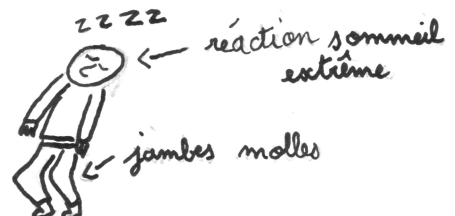 z z z z
réaction sommeil
extrême
jambes molles